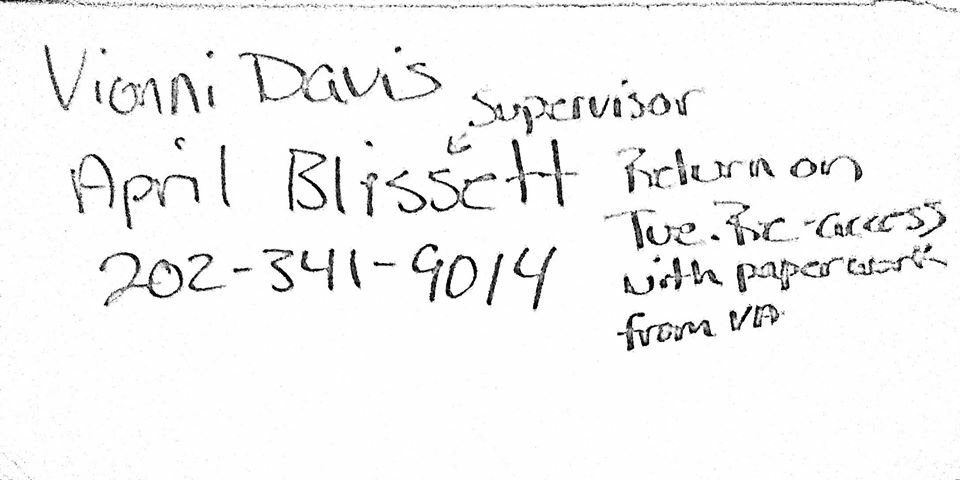 Vionni Davis
Supervisor
April Blissett
202-341-9014
Return on
Tue. Re-access
with paperwork
from VA